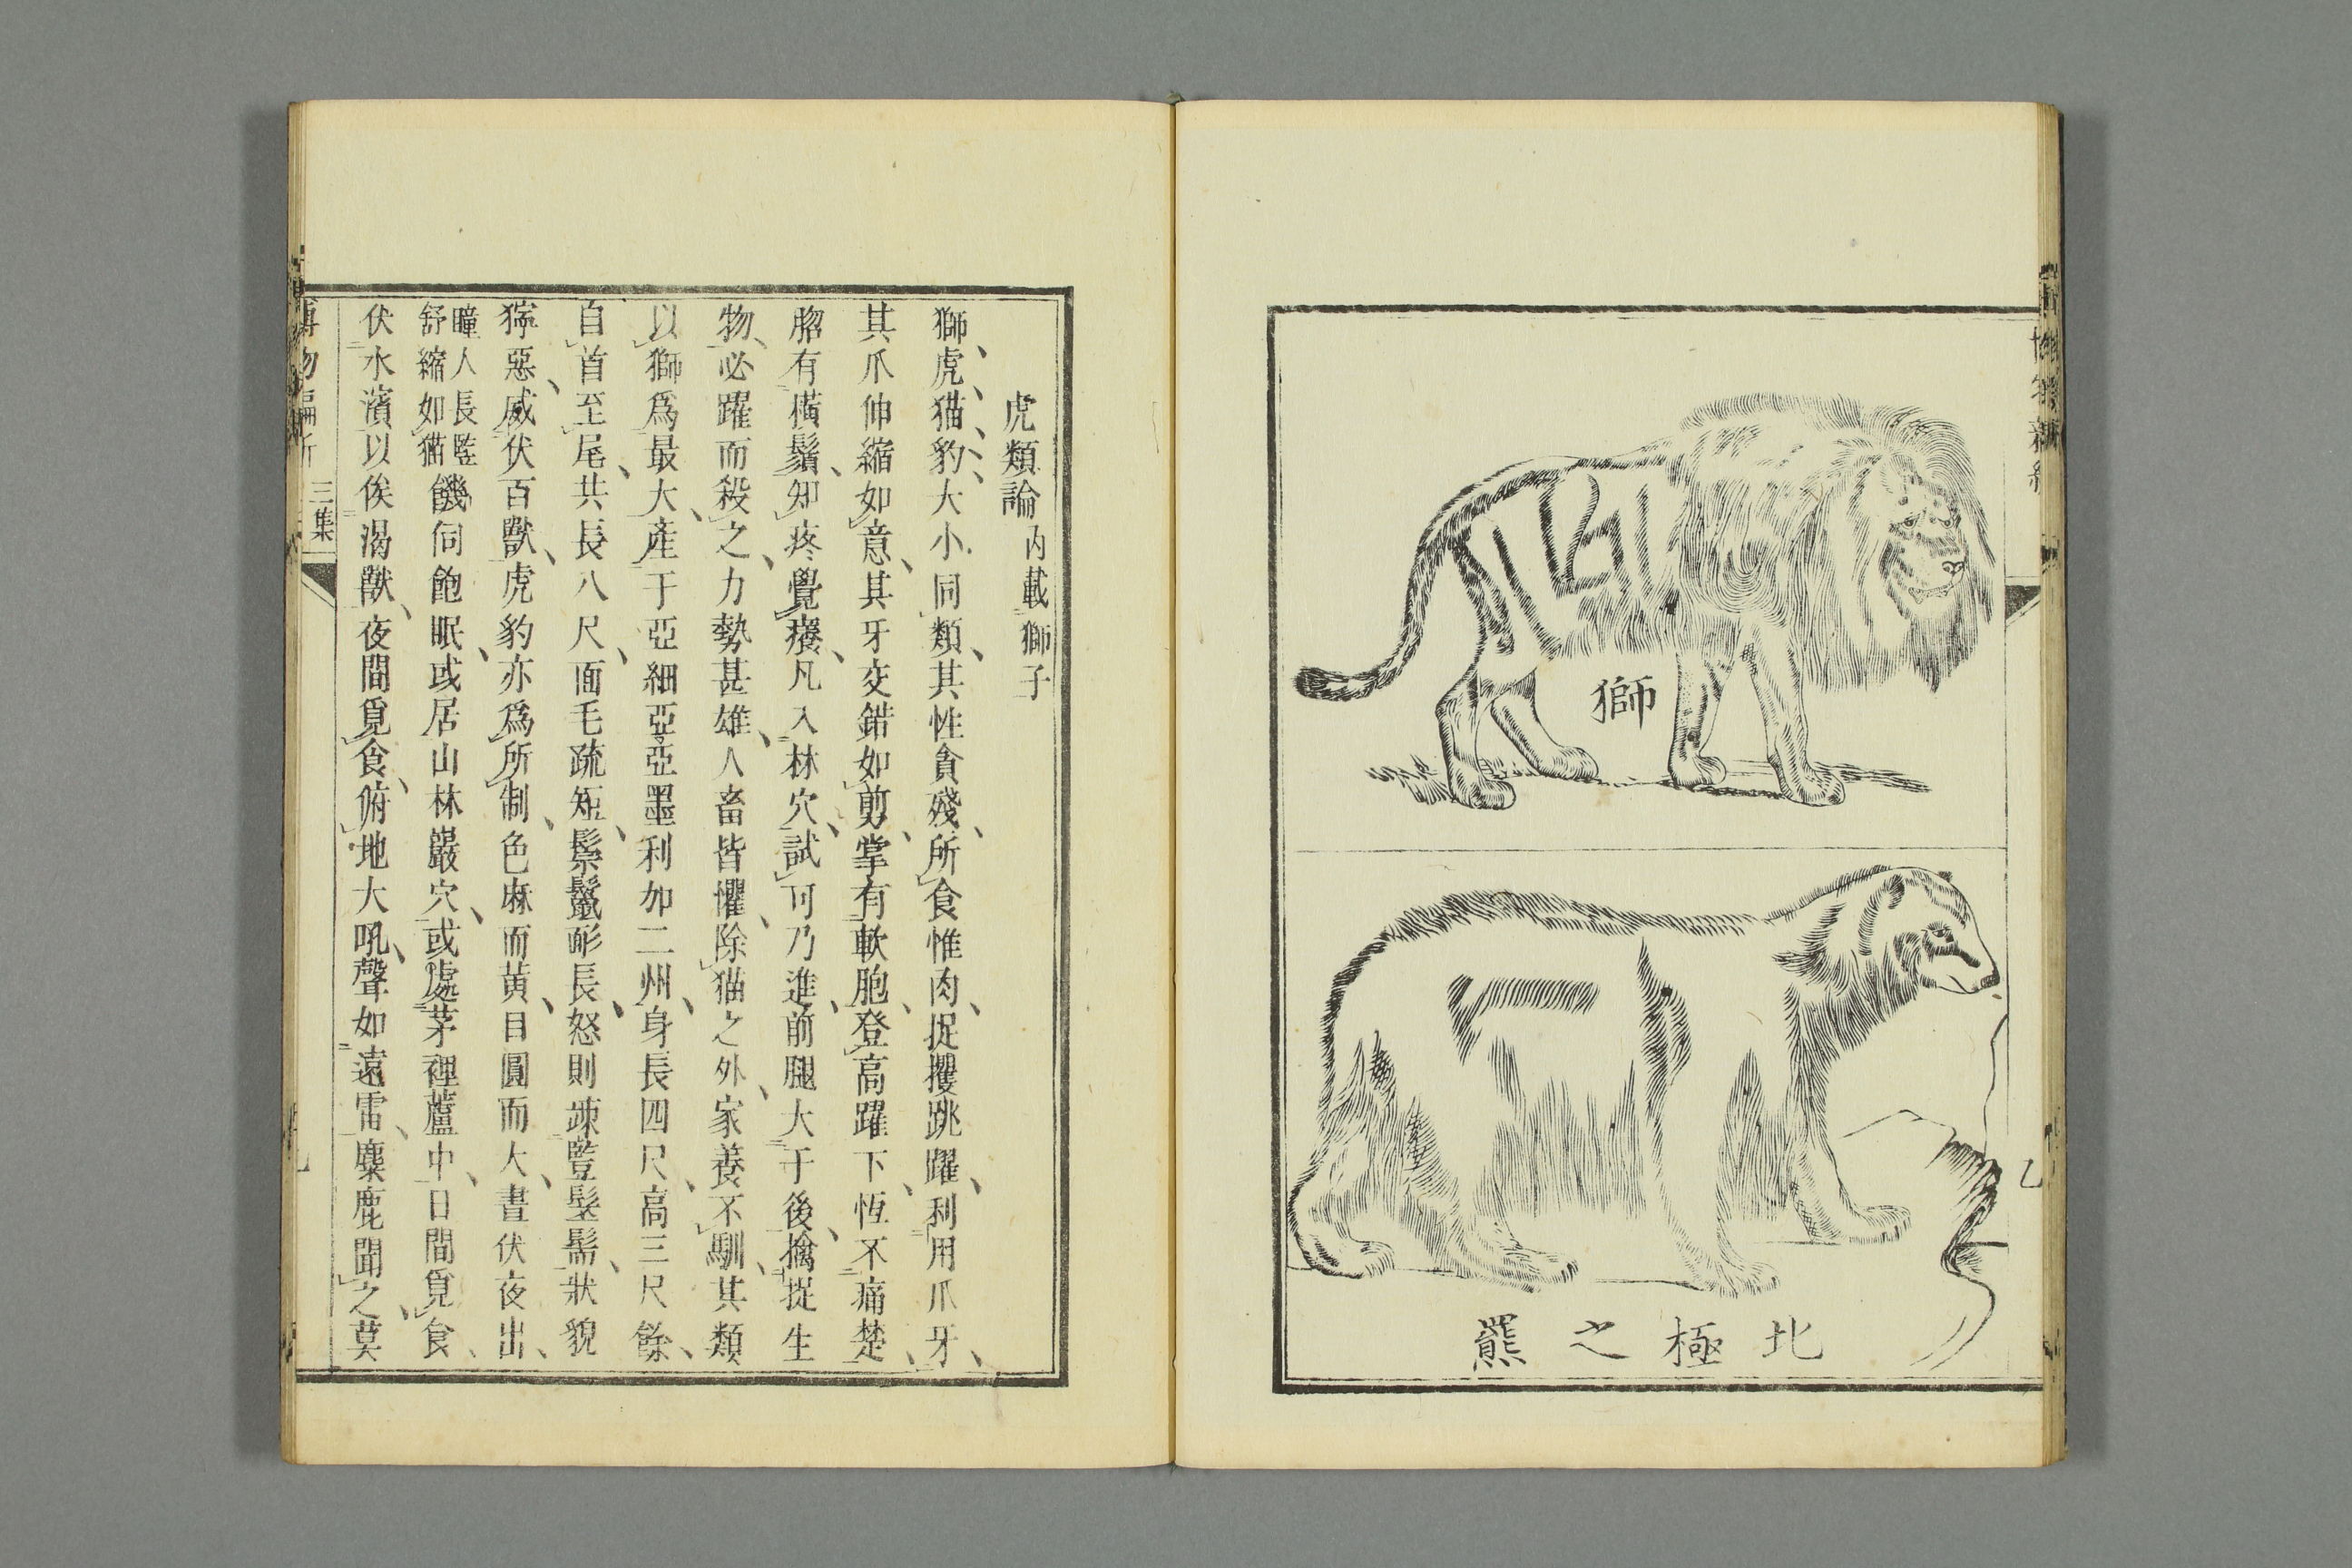 獅
北極之羆
虎類論 内載獅子
獅、虎、猫、豹、大小同類、其性貪殘、所食惟肉、捉攫跳躍、利用爪牙、
其爪伸縮如意、其牙交錯如剪、掌有軟胞、登高躍下、恆不痛楚、
有橫鬚、知疼覺癢、凡入林穴、試可乃進、前腿大于後、擒捉生
物、必躍而殺之、力勢甚雄、人畜皆懼、除猫之外、家養不馴、其類
以獅爲最大、產于亞細亞亞墨利加二州、身長四尺、高三尺餘、
自首至尾、共長八尺、面毛疏短、鬃鬣耏長、怒則竦豎、髮髵、狀貌
獰惡、威伏百獸、虎豹亦爲所制、色麻而黄、目圓而大、晝伏夜出、
瞳人長監
舒縮如猫
饑伺飽眠、或居山林巖穴、或處茅裡蘆中、日間覓食、
伏水濱以俟渴獸、夜間覓食、俯地大吼、聲如遠雷、麋鹿聞之、莫
三集